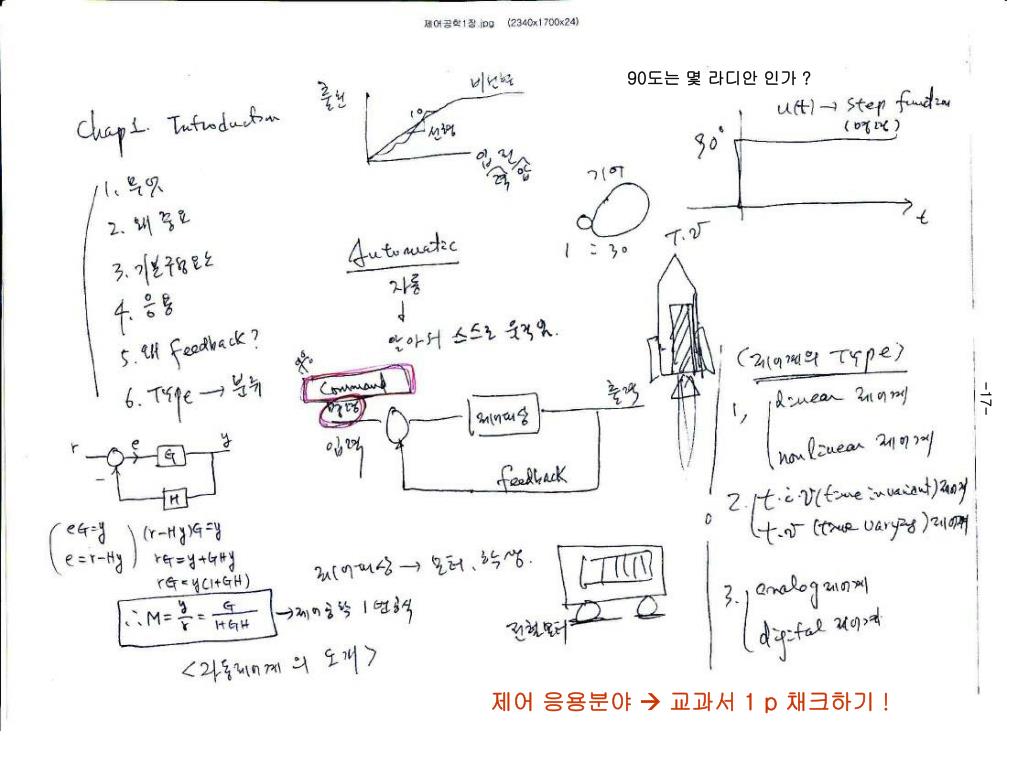 제어공학1장.jpg (2340x1700x24)
90도는 몇 라디안 인가 ?
Chap1. Introduction
1. 무엇
2. 왜 중요
3. 기본구성요소
4. 응용
5. 왜 feedback?
6. Type → 분류
출력
비선형
선형
입력
전압
기어
1 : 30
u(t) → Step function
(명령)
90°
t
Automatic
자동
↓
알아서 스스로 움직임.
T.V
Command
명령
입력
제어대상
출력
feedback
r
e
G
y
−
H
(eG=y
e=r-Hy)
(r-Hy)G=y
rG=y+GHy
rG=y(1+GH)
∴M=y/r=G/1+GH → 제어공학 1번공식
제어대상 → 모터, 학생.
전철모터
<자동제어계의 소개>
(제어계의 Type)
1, linear 제어계
nonlinear 제어계
2. t.i.v(time invariant)제어계
t.v (time varying)제어계
3. analog제어계
digital 제어계
-17-
제어 응용분야 → 교과서 1 p 채크하기 !